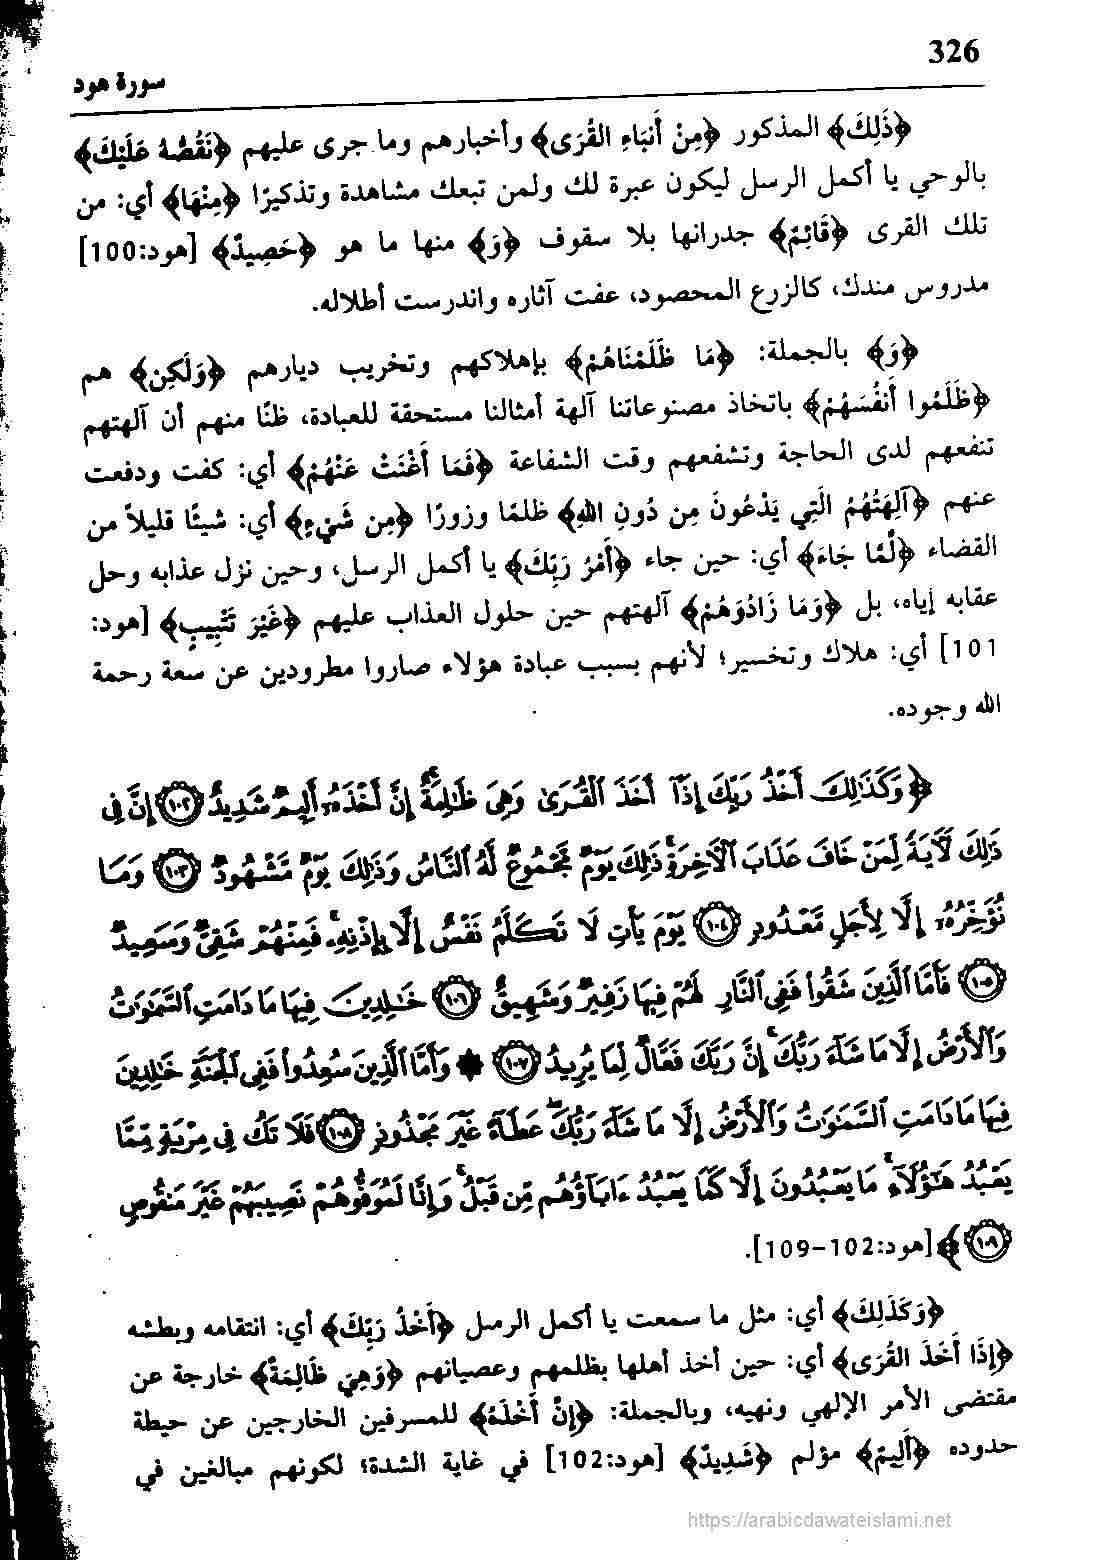 326
سورة هود
﴿ذَلِكَ﴾ المذكور ﴿مِنْ أَنبَاءِ القُرَى﴾ وأخبارهم وما جرى عليهم ﴿نَقُصُّهُ عَلَيْكَ﴾
بالوحي يا أكمل الرسل ليكون عبرة لك ولمن تبعك مشاهدة وتذكيرًا ﴿مِنْهَا﴾ أي: من
تلك القرى ﴿قَائِمٌ﴾ جدرانها بلا سقوف ﴿وَ﴾ منها ما هو ﴿حَصِيدٌ﴾ [هود:100]
مدروس مندك، كالزرع المحصود، عفت آثاره واندرست أطلاله.
﴿وَ﴾ بالجملة: ﴿مَا ظَلَمْنَاهُمْ﴾ بإهلاكهم وتخريب ديارهم ﴿وَلَكِن﴾ هم
﴿ظَلَمُوا أَنفُسَهُمْ﴾ باتخاذ مصنوعاتنا آلهة أمثالنا مستحقة للعبادة، ظنًا منهم أن آلهتهم
تنفعهم لدى الحاجة وتشفعهم وقت الشفاعة ﴿فَمَا أَغْنَتْ عَنْهُمْ﴾ أي: كفت ودفعت
عنهم ﴿آلِهَتُهُمُ الَتِي يَدْعُونَ مِن دُونِ اللهِ﴾ ظلمًا وزورًا ﴿مِن شَيْءٍ﴾ أي: شيئًا قليلاً من
القضاء ﴿لَّمَّا جَاءَ﴾ أي: حين جاء ﴿أَمْرُ رَبِّكَ﴾ يا أكمل الرسل، وحين نزل عذابه وحل
عقابه إياه، بل ﴿وَمَا زَادُوَهُمْ﴾ آلهتهم حين حلول العذاب عليهم ﴿غَيْرَ تَتْبِيبٍ﴾ [هود:
101] أي: هلاك وتخسير؛ لأنهم بسبب عبادة هؤلاء صاروا مطرودين عن سعة رحمة
الله وجوده.
﴿وَكَذَٰلِكَ أَخْذُ رَبِّكَ إِذَآ أَخَذَ ٱلْقُرَىٰ وَهِىَ ظَٰلِمَةٌ ۚ إِنَّ أَخْذَهُۥٓ أَلِيمٌ شَدِيدٌ ١٠٢ إِنَّ فِى
ذَٰلِكَ لَآيَةً لِّمَنْ خَافَ عَذَابَ ٱلْآخِرَةِ ۚ ذَٰلِكَ يَوْمٌ مَّجْمُوعٌ لَّهُ ٱلنَّاسُ وَذَٰلِكَ يَوْمٌ مَّشْهُودٌ ١٠٣ وَمَا
نُؤَخِّرُهُۥٓ إِلَّا لِأَجَلٍ مَّعْدُودٍ ١٠٤ يَوْمَ يَأْتِ لَا تَكَلَّمُ نَفْسٌ إِلَّا بِإِذْنِهِۦ ۚ فَمِنْهُمْ شَقِىٌّ وَسَعِيدٌ
١٠٥ فَأَمَّا ٱلَّذِينَ شَقُوا۟ فَفِى ٱلنَّارِ لَهُمْ فِيهَا زَفِيرٌ وَشَهِيقٌ ١٠٦ خَٰلِدِينَ فِيهَا مَا دَامَتِ ٱلسَّمَٰوَٰتُ
وَٱلْأَرْضُ إِلَّا مَا شَآءَ رَبُّكَ ۚ إِنَّ رَبَّكَ فَعَّالٌ لِّمَا يُرِيدُ ١٠٧ ۞ وَأَمَّا ٱلَّذِينَ سُعِدُوا۟ فَفِى ٱلْجَنَّةِ خَٰلِدِينَ
فِيهَا مَا دَامَتِ ٱلسَّمَٰوَٰتُ وَٱلْأَرْضُ إِلَّا مَا شَآءَ رَبُّكَ ۖ عَطَآءً غَيْرَ مَجْذُوذٍ ١٠٨ فَلَا تَكُ فِى مِرْيَةٍ مِّمَّا
يَعْبُدُ هَٰٓؤُلَآءِ ۚ مَا يَعْبُدُونَ إِلَّا كَمَا يَعْبُدُ ءَابَآؤُهُم مِّن قَبْلُ ۚ وَإِنَّا لَمُوَفُّوهُمْ نَصِيبَهُمْ غَيْرَ مَنقُوصٍ
١٠٩﴾ [هود:102-109].
﴿وَكَذَلِكَ﴾ أي: مثل ما سمعت يا أكمل الرسل ﴿أَخْذُ رَبِّكَ﴾ أي: انتقامه وبطشه
﴿إِذَا أَخَذَ القُرَى﴾ أي: حين أخذ أهلها بظلمهم وعصيانهم ﴿وَهِيَ ظَالِمَةٌ﴾ خارجة عن
مقتضى الأمر الإلهي ونهيه، وبالجملة: ﴿إِنَّ أَخْذَهُ﴾ للمسرفين الخارجين عن حيطة
حدوده ﴿أَلِيمٌ﴾ مؤلم ﴿شَدِيدٌ﴾ [هود:102] في غاية الشدة؛ لكونهم مبالغين في
https://arabicdawateislami.net